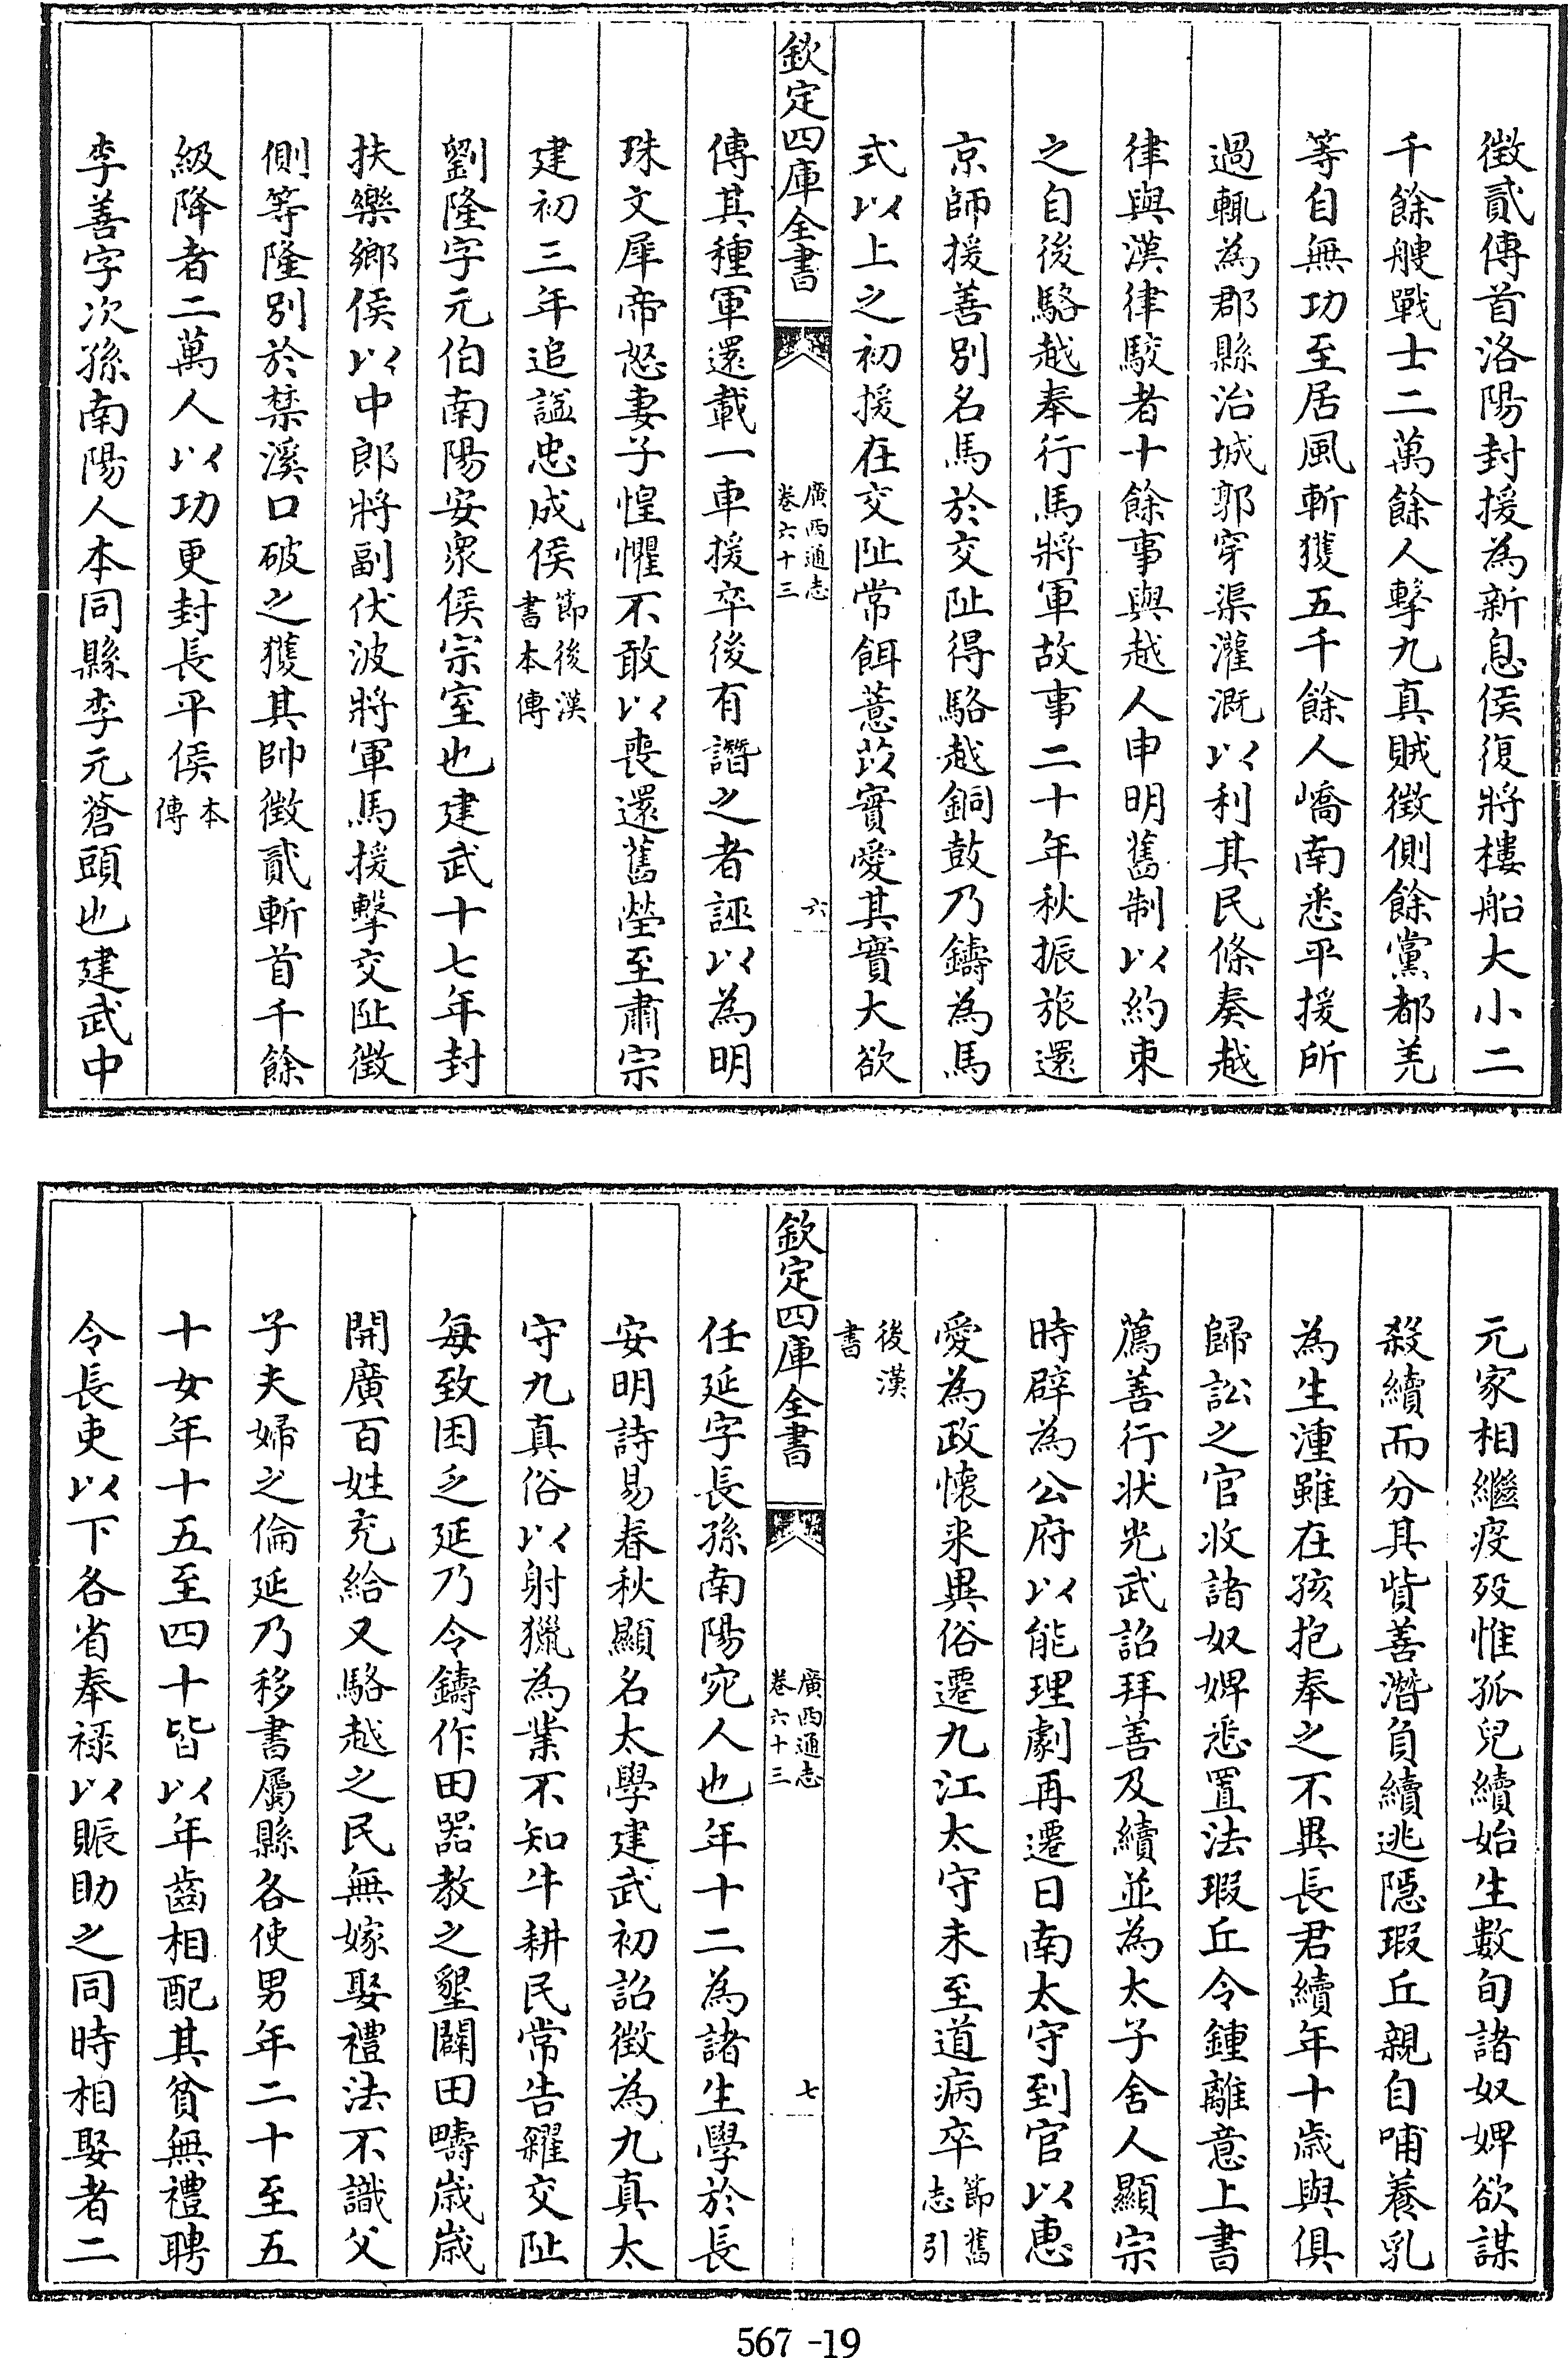 徴貳傳首洛陽封援為新息侯復將樓船大小二
千餘艘戰士二萬餘人擊九真賊徴側餘黨都羌
等自無功至居風斬獲五千餘人嶠南悉平援所
過輒為郡縣治城郭穿渠灌溉以利其民條奏越
律與漢律駮者十餘事與越人申明舊制以約束
之自後駱越奉行馬將軍故事二十年秋振旅還
京師援善別名馬於交阯得駱越銅鼓乃鑄為馬
式以上之初援在交阯常餌薏苡實愛其實大欲
欽定四庫全書
廣西通志
卷六十三
六
傳其種軍還載一車援卒後有譖之者誣以為明
珠文犀帝怒妻子惶懼不敢以喪還舊塋至肅宗
建初三年追諡忠成侯節後漢書本傳
劉隆字元伯南陽安衆侯宗室也建武十七年封
扶樂鄉侯以中郎將副伏波將軍馬援擊交阯徴
側等隆別於禁溪口破之獲其帥徴貳斬首千餘
級降者二萬人以功更封長平侯本傳
李善字次孫南陽人本同縣李元蒼頭也建武中
元家相繼疫歿惟孤兒續始生數旬諸奴婢欲謀
殺續而分其貲善潛負續逃隱瑕丘親自哺養乳
為生湩雖在孩抱奉之不異長君續年十歲與俱
歸訟之官收諸奴婢悉置法瑕丘令鍾離意上書
薦善行狀光武詔拜善及續並為太子舍人顯宗
時辟為公府以能理劇再遷日南太守到官以惠
愛為政懷来異俗遷九江太守未至道病卒節舊志引
後漢書
欽定四庫全書
廣西通志
卷六十三
七
任延字長孫南陽宛人也年十二為諸生學於長
安明詩易春秋顯名太學建武初詔徴為九真太
守九真俗以射獵為業不知牛耕民常告糴交阯
每致困乏延乃令鑄作田器教之墾闢田疇歲歲
開廣百姓充給又駱越之民無嫁娶禮法不識父
子夫婦之倫延乃移書屬縣各使男年二十至五
十女年十五至四十皆以年齒相配其貧無禮聘
令長吏以下各省奉祿以賑助之同時相娶者二
567-19